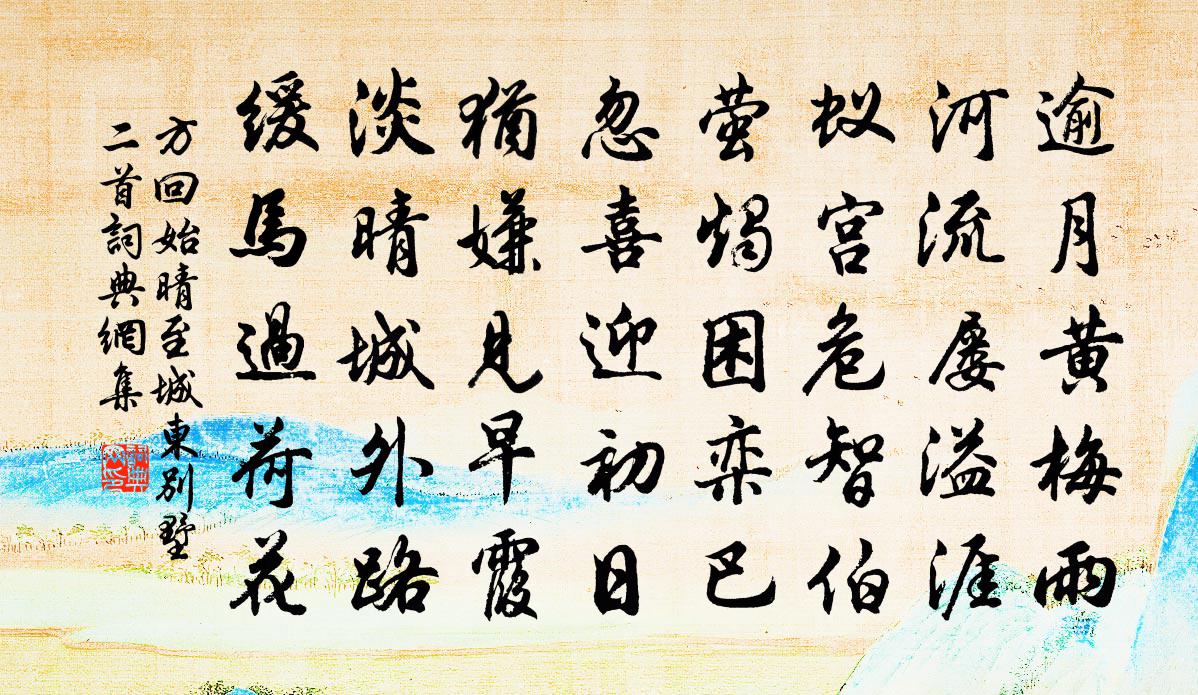 逾月黄梅雨
河流屡溢涯
蚁宫危智伯
萤燭困栾巴
忽喜迎初日
猶嫌見早霞
淡晴城外路
缓馬過荷花
方回始晴至城東别墅
二首詞典網集